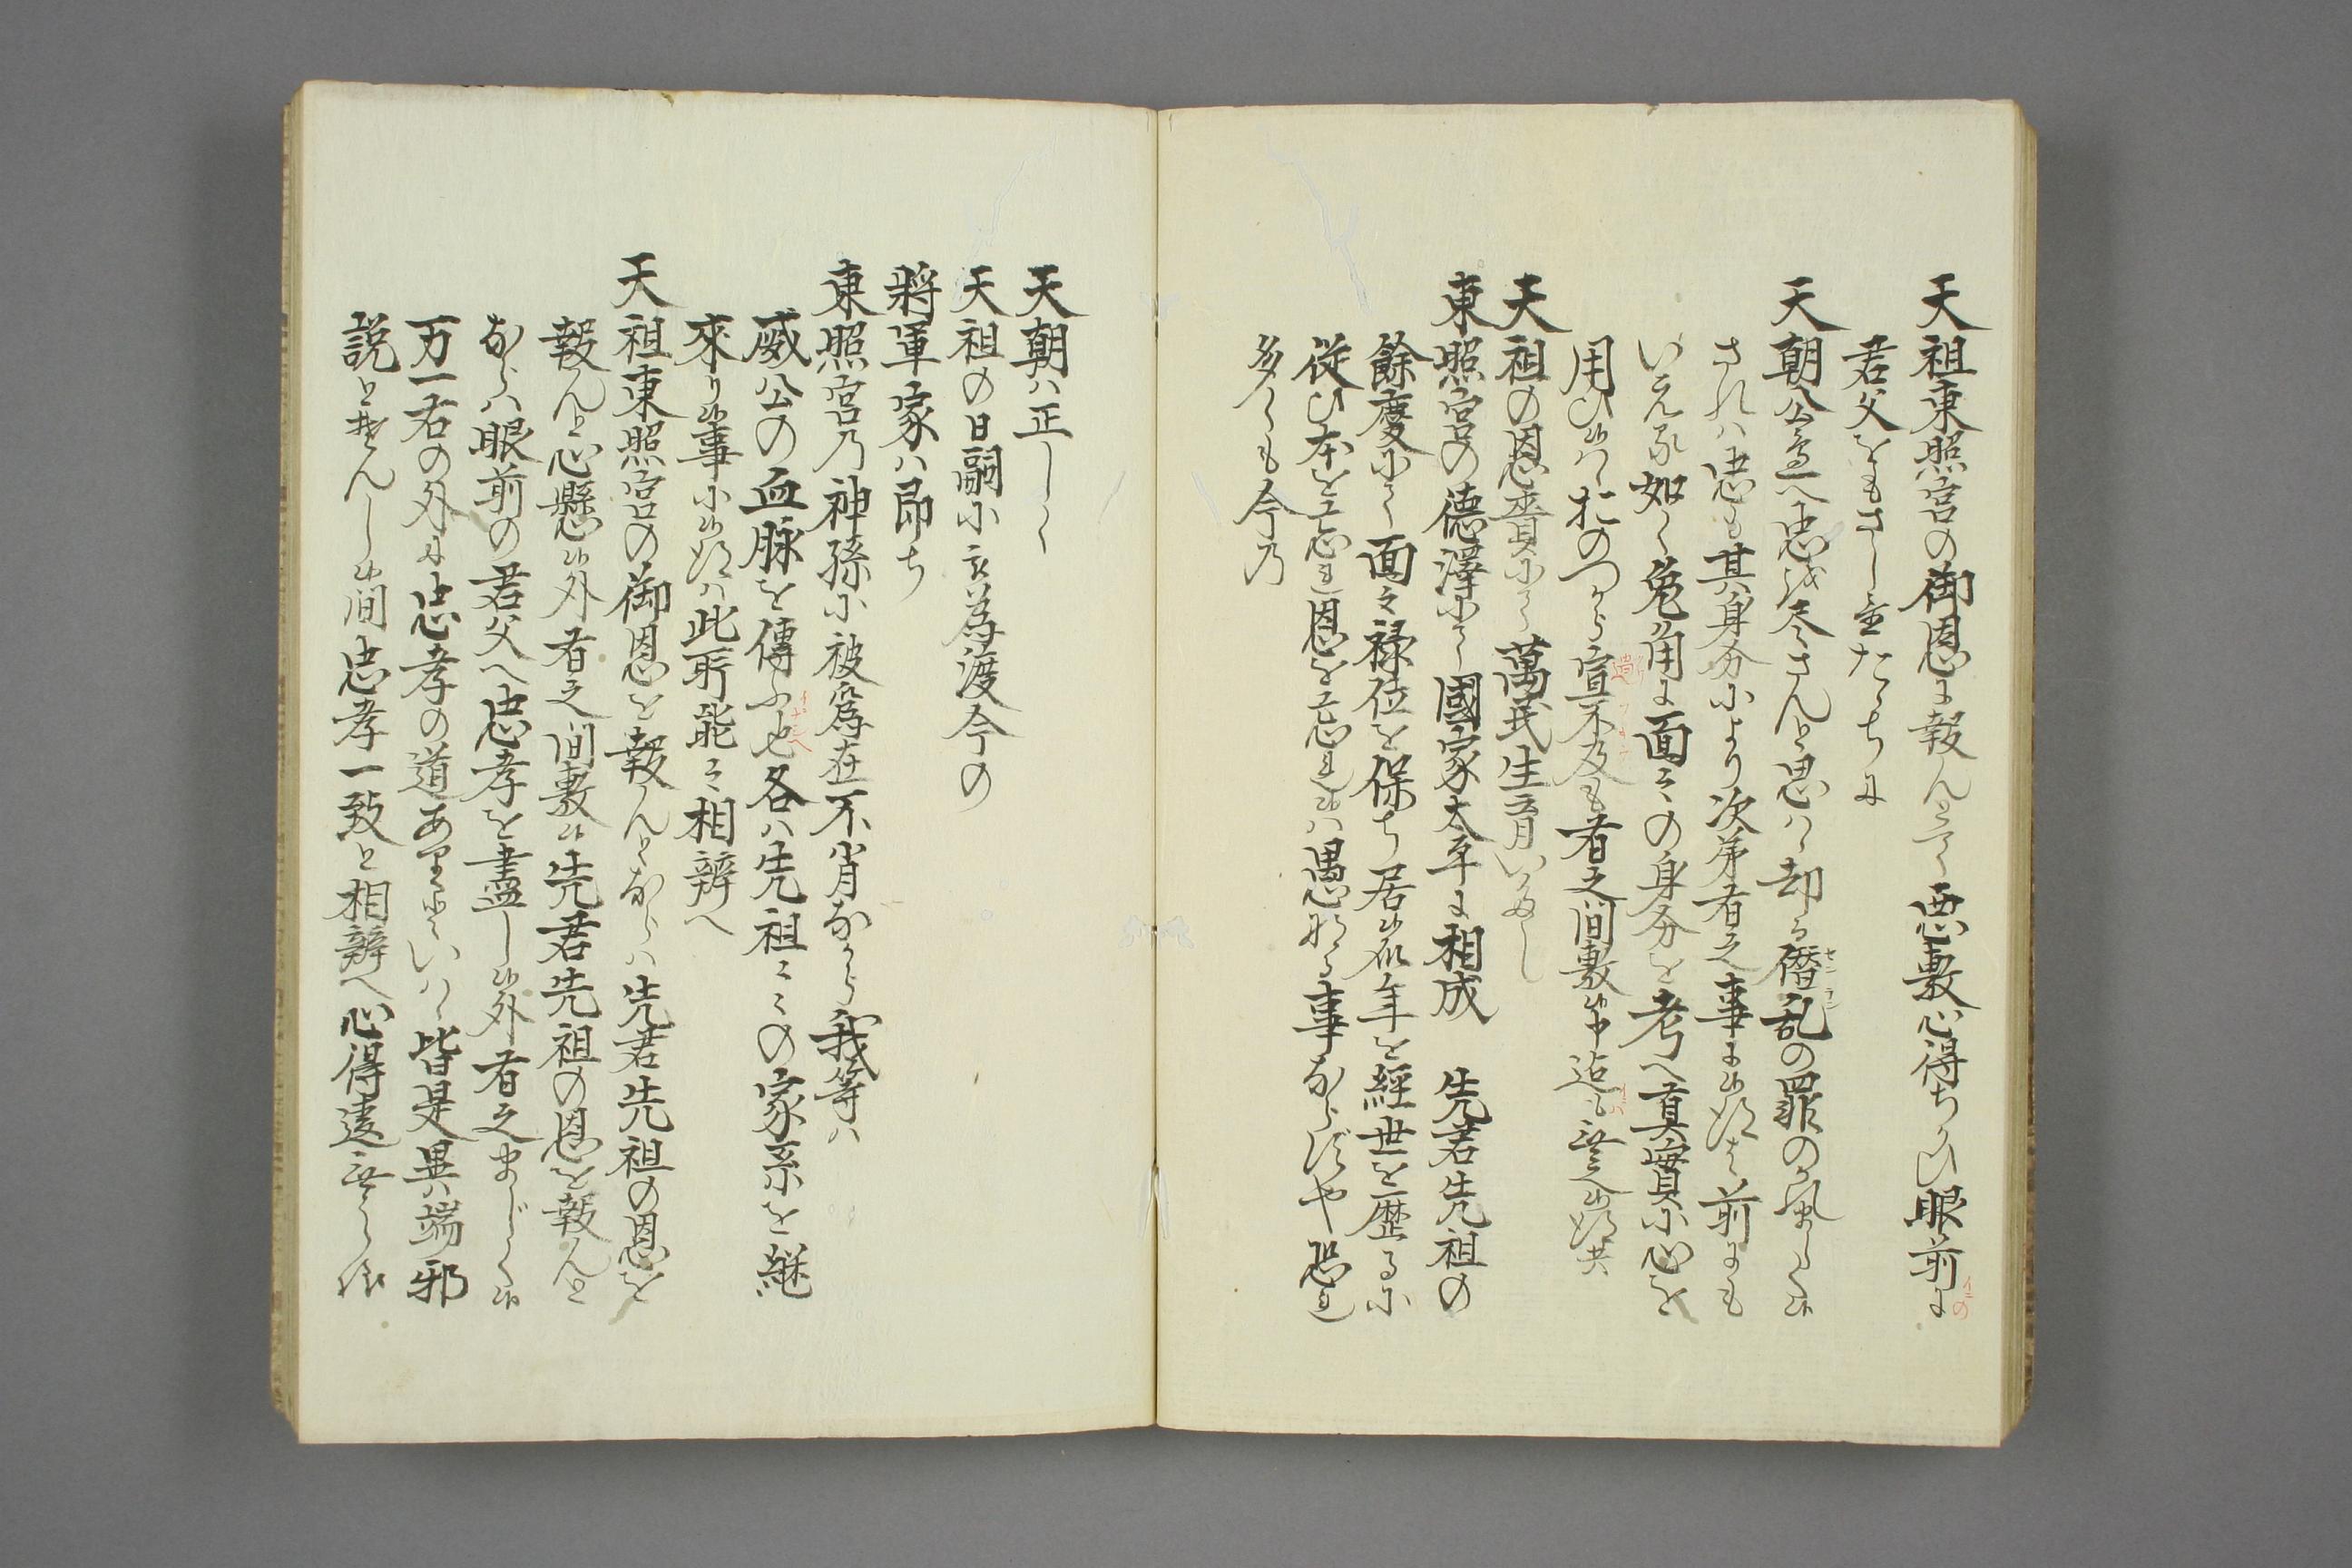 天祖東照宮の御恩に報んとて悪敷心得ちかひ眼前に
君父をもさし置たゝちに
天朝公邊へ忠を尽さんと思はゝ却て僭乱の罪のかれましく候
されハ忠も其身分により次第有之事に候得は前にも
いえる如く兎角に面々の身分を考へ真実に心を
用ひ候はゝおのつから宣不及も有之間敷候
天祖の恩賚にて萬民生育いたし
東照宮の徳澤にて國家太平に相成 先君先祖の
餘慶にて面々禄位を保ち居候処年を經世を歴るに
従ひ本を忘れ恩を忘れ候ハ愚なる事ならすや恐れ
多くも今乃
天朝ハ正しく
天祖の日嗣に被為渡今の
將軍家ハ即ち
東照宮乃神孫に被為在不肖なから我等ハ
威公の血脉を傳ふ也各ハ先祖々々の家系を継
來り候事に候得ハ此所能々相辨へ
天祖東照宮の御恩を報んとならハ先君先祖の恩を
報んと心懸候外有之間敷候先君先祖の恩を報んと
ならハ眼前の君父へ忠孝を盡し候外有之ましく候
万一右の外に忠孝の道ありといはゝ皆是異端邪
説と申間忠孝一致と相辨へ心得違無之様